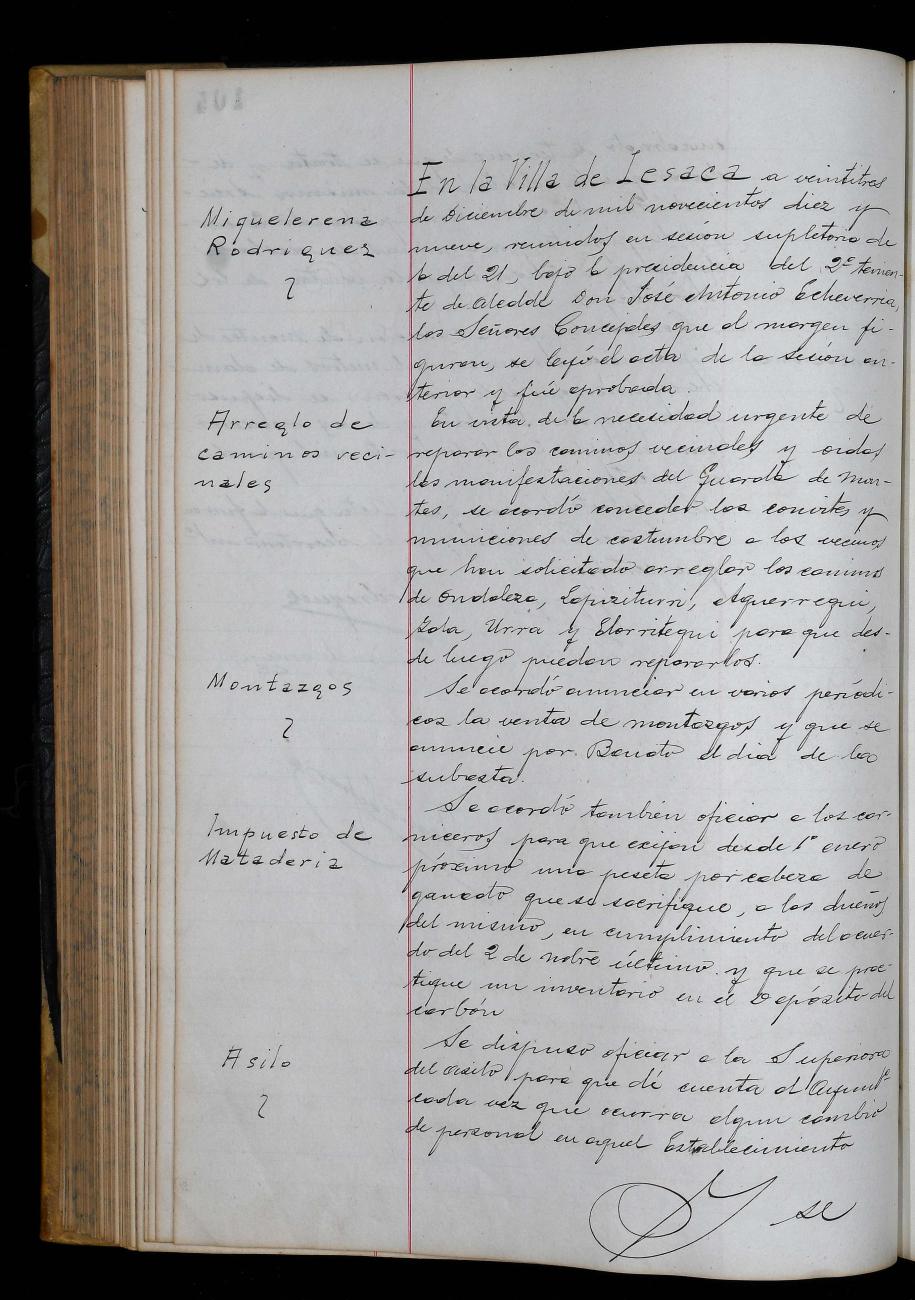 En la Villa de Lesaca a veintitres
Miguelerena
Rodriguez
de Diciembre de mil novecientos diez y
nueve, reunidos en sesión supletoria de
la del 21, bajo la presidencia del 2º tenien-
te de alcalde Don José Antonio Echeverria,
los Señores Concejales que al margen fi-
guran, se leyó el acta de la sesión an-
terior y fué aprobada
Arreglo de
caminos veci-
nales
En vista de la necesidad urgente de
reparar los caminos vecinales y oidas
las manifestaciones del Guarda de Mon-
tes, se acordó conceder los convites y
municiones de costumbre a los vecinos
que han solicitado arreglar los caminos
de Ondalaza, Lapiziturri, Aguerregui,
Zala, Urra y Elorritegui para que des-
de luego puedan repararlos.
Montazgos
Se acordó anunciar en varios periódi-
cos la venta de montazgos y que se
anuncie por Bando el dia de la
subasta.
Impuesto de
Mataderia
Se acordó también oficiar a los car-
niceros para que exijan desde 1º enero
próximo una peseta por cabeza de
ganado que se sacrifique, a los dueños
del mismo, en cumplimiento del acuer-
do del 2 de nobre último y que se prac-
tique un inventario en el Depósito del
carbón
Asilo
Se dispuso oficiar a la Superiora
del asilo para que dé cuenta al Ayuntº
cada vez que ocurra algun cambio
de personal en aquel Establecimiento
Y se